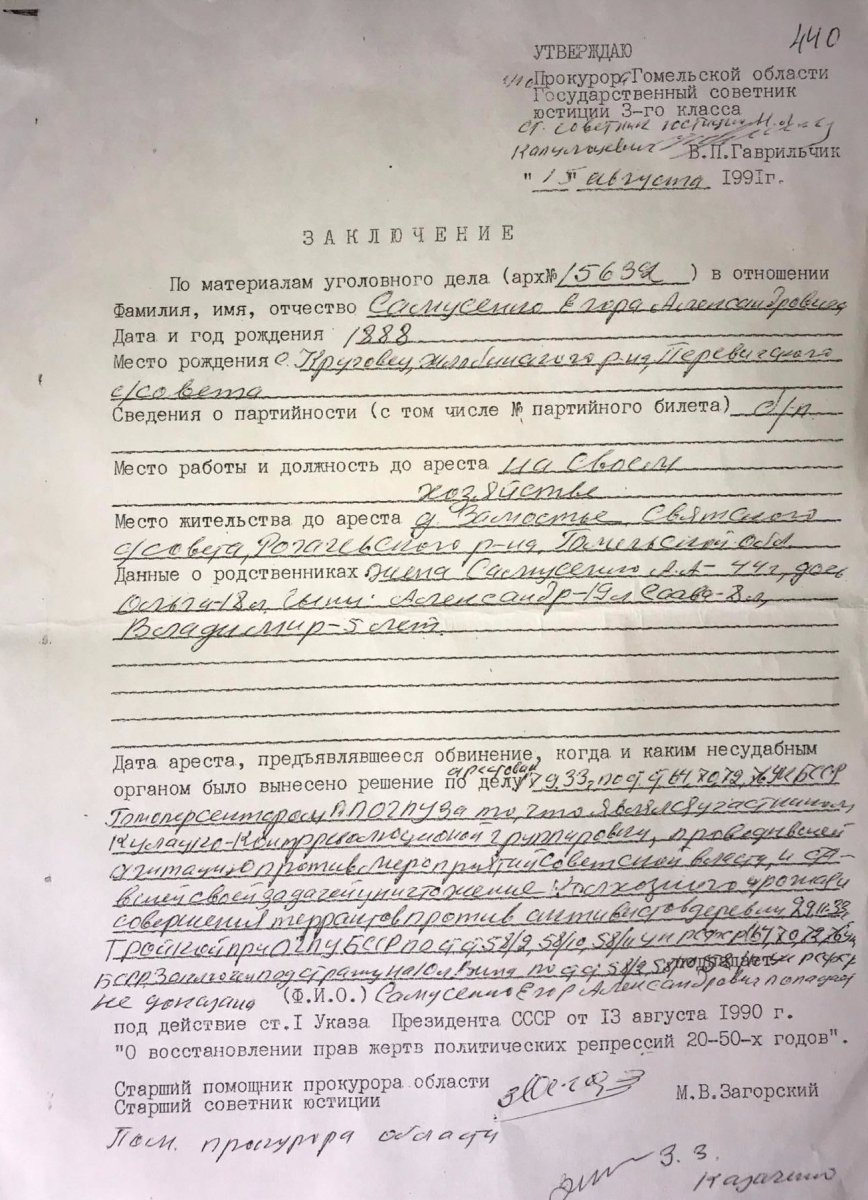 440
УТВЕРЖДАЮ
Прокурор Гомельской области
Государственный советник
юстиции 3-го класса
ст. советник юстиции
В.П.Гаврильчик
"15" августа 1991г.
ЗАКЛЮЧЕНИЕ
По материалам уголовного дела (арх№ 15632 ) в отношении
Фамилия, имя, отчество Самусенко Егора Александровича
Дата и год рождения 1888
Место рождения с. Круговец, Жлобинского р-на, Перевичского
с/совета
Сведения о партийности (с том числе № партийного билета) б/п
Место работы и должность до ареста на своем
хозяйстве
Место жительства до ареста д. Замостье Святского
с/совета, Рогачевского р-на, Гомельской обл.
Данные о родственниках жена Самусенко А.А- 44г, дочь
Ольга-18л, сыны: Александр-19л 8л,
Владимир-5 лет.
Дата ареста, предъявлявшееся обвинение, когда и каким несудебным
арестован
органом было вынесено решение по делу 7.9.33, по ст.ст 67, 70, 72, 76 УК БССР
ПП ОГПУ за то, что являлся участником
кулацко-контрреволюционной группировки, проводившей
агитацию против мероприятий Советской власти, и ста-
вившей своей задачей уничтожение колхозного урожая
совершения террактов против активистов деревни 29.11.33
Тройкой при ОГПУ БССР по ст.ст 58/9, 58/10, 58/11 УК РСФСР (67, 70, 72, 76 УК
БССР) Заключен под стражу на Вина по ст.ст 58/9, 58/10, 58/11 УК РСФСР
подпадает
не доказана (Ф.И.О.) Самусенко Егор Александрович попадает
под действие ст.I Указа Президента СССР от I3 августа 1990 г.
"О восстановлении прав жертв политических репрессий 20-50-х годов".
Старший помощник прокурора области
Старший советник юстиции М.В.Загорский
Пом. прокурора области
З.З.
Казаченко